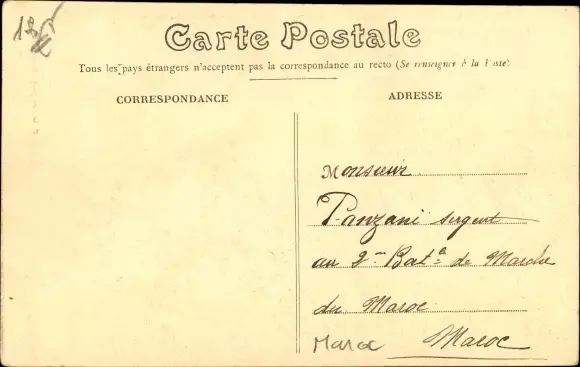 Carte Postale
Tous les pays étrangers n'acceptent pas la correspondance au recto (Se renseigner à la Poste)
CORRESPONDANCE
ADRESSE
Monsieur
Panzani sergent
au 2me Bat. de Marche
du Maroc
Maroc
Maroc